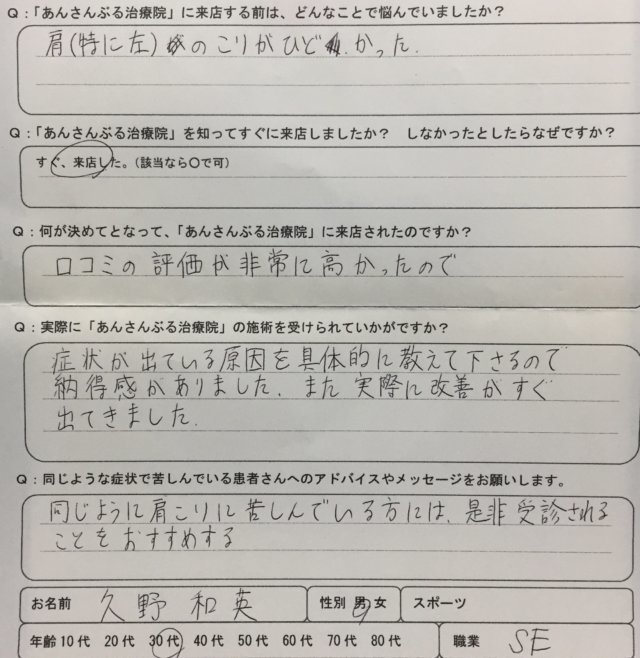 Q：「あんさんぶる治療院」に来店する前は、どんなことで悩んでいましたか？
肩(特に左)のこりがひどかった.
Q：「あんさんぶる治療院」を知ってすぐに来店しましたか？ しなかったとしたらなぜですか？
すぐ、来店した。（該当なら〇で可）
Q：何が決めてとなって、「あんさんぶる治療院」に来店されたのですか？
口コミの評価が非常に高かったので
Q：実際に「あんさんぶる治療院」の施術を受けられていかがですか？
症状が出ている原因を具体的に教えて下さるので
納得感がありました. また実際に改善がすぐ
出てきました.
Q：同じような症状で苦しんでいる患者さんへのアドバイスやメッセージをお願いします。
同じように肩こりに苦しんでいる方には、是非受診される
ことをおすすめする
お名前 久野 和英 性別 男 女 スポーツ
年齢 10代 20代 30代 40代 50代 60代 70代 80代 職業 SE